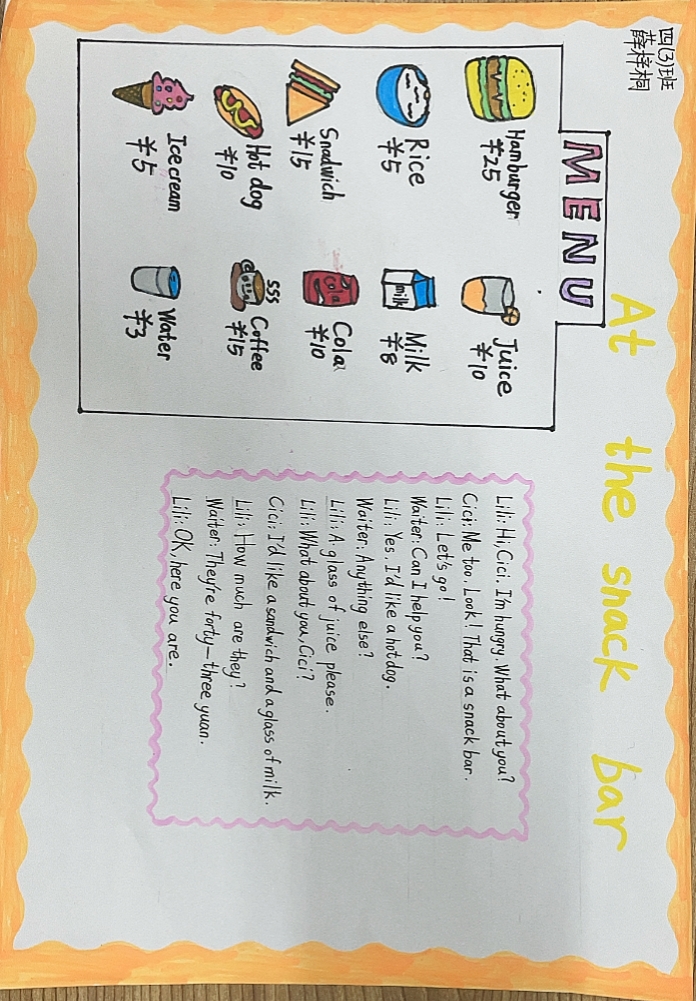 四(3)班
薛梓桐
At the snack bar
MENU
Hamburger
¥25
Juice
¥10
Rice
¥5
Milk
¥8
milk
Snadwich
¥15
Cola
¥10
Cola
Hot dog
¥10
Coffee
¥15
Ice cream
¥5
Water
¥3
Lili: Hi, Cici. I'm hungry. What about you?
Cici: Me too. Look! That is a snack bar.
Lili: Let's go!
Waiter: Can I help you?
Lili: Yes. I'd like a hot dog.
Waiter: Anything else?
Lili: A glass of juice please.
Lili: What about you, Cici?
Cici: I'd like a sandwich and a glass of milk.
Lili: How much are they?
Waiter: They're forty-three yuan.
Lili: OK, here you are.